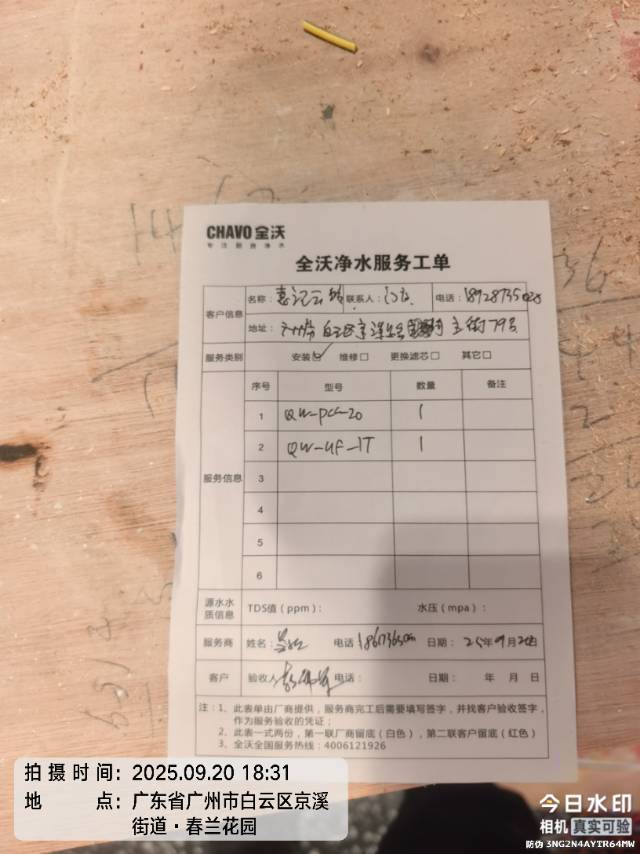 CHAVO 全沃
专注厨房净水
全沃净水服务工单
客户信息
名称： 联系人： 电话：
地址： 主街79号
服务类别 安装☑ 维修□ 更换滤芯□ 其它□
服务信息
序号 型号 数量 备注
1 QW-PCF-20 1
2 QW-UF-1T 1
3
4
5
6
源水水质信息 TDS值（ppm）： 水压（mpa）：
服务商 姓名： 电话 日期：25年09月20日
客户 验收人 电话： 日期： 年 月 日
注：1、此表单由厂商提供，服务商完工后需要填写签字，并找客户验收签字，
作为服务验收的凭证；
2、此表一式两份，第一联厂商留底（白色），第二联客户留底（红色）
3、全沃全国服务热线：4006121926
拍摄时间：2025.09.20 18:31
地点：广东省广州市白云区京溪
街道·春兰花园
今日水印
相机 真实可验
防伪 3NG2N4AYTR64MW